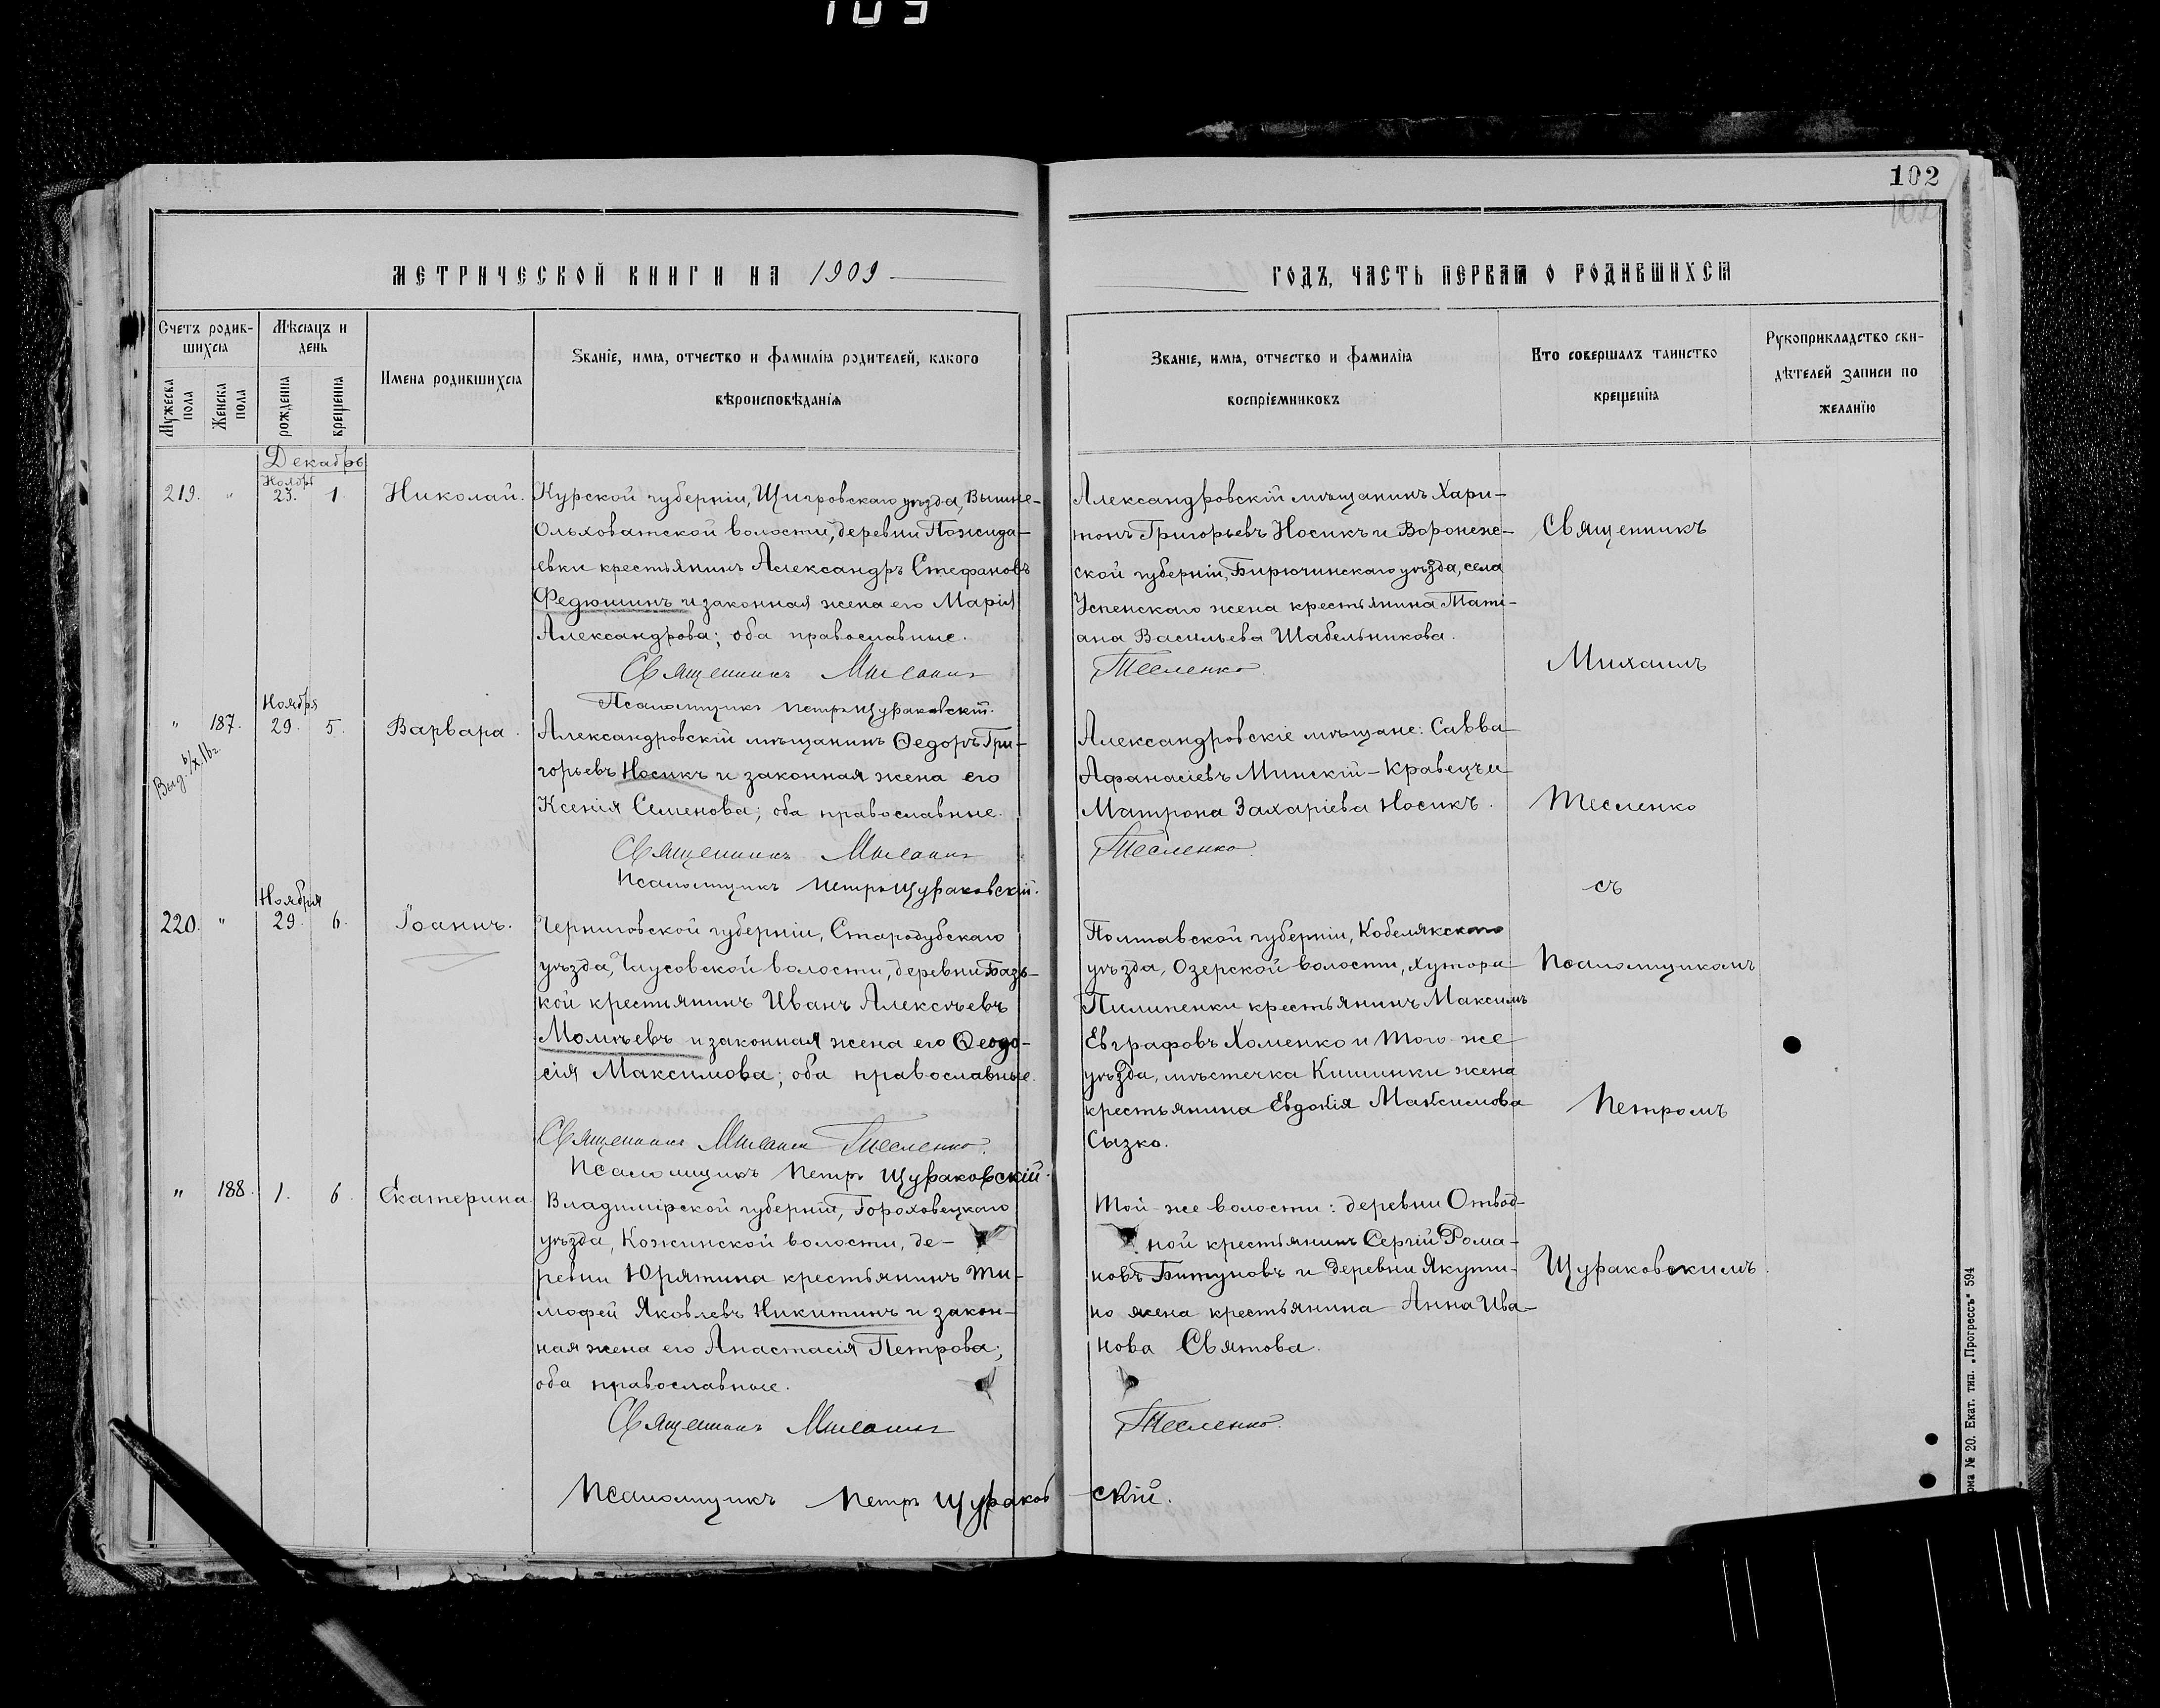 103
102
102
МЕТРИЧЕСКОЙ КНИГИ НА 1909
ГОДЪ, ЧАСТЬ ПЕРВАЯ О РОДИВШИХСЯ
Счетъ родив-
шихся
Мѣсяцъ и
день
Мужеска
пола
Женска
пола
рожденія
крещенія
Имена родившихся
Званіе, имя, отчество и фамилія родителей, какого
вѣроисповѣданія
Званіе, имя, отчество и фамилія
воспріемниковъ
Кто совершалъ таинство
крещенія
Рукоприкладство сви-
дѣтелей записи по
желанію
Декабрь
Ноября
219. " 23. 1. Николай.
Курской губерніи, Щигровскаго уѣзда, Вышне-
Ольховатской волости, деревни Пожида-
евки крестьянинъ Александръ Стефановъ
Федюшинъ и законная жена его Марія
Александрова; оба православные.
Священникъ Михаилъ
Псаломщикъ Петръ Щураковскій.
Александровскій мѣщанинъ Хари-
тонъ Григорьевъ Носикъ и Воронеж-
ской губерніи, Бирючинскаго уѣзда, села
Успенскаго жена крестьянина Тати-
ана Васильева Шабельникова.
Тесленко
Священникъ
Михаилъ
Тесленко
съ
Псаломщикомъ
Петромъ
Щураковскимъ.
Ноября
" 187. 29. 5. Варвара.
Александровскій мѣщанинъ Ѳедоръ Гри-
горьевъ Носикъ и законная жена его
Ксенія Семенова; оба православные.
Священникъ Михаилъ
Псаломщикъ Петръ Щураковскій.
Александровскіе мѣщане: Савва
Афанасіевъ Минскій-Кравецъ и
Матрона Захаріева Носикъ.
Тесленко
Ноября
220. " 29. 6. Іоаннъ.
Черниговской губерніи, Стародубскаго
уѣзда, волости, деревни
кой крестьянинъ Иванъ Алексѣевъ
Момѣевъ и законная жена его Ѳеодо-
сія Максимова; оба православные.
Священникъ Михаилъ Тесленко.
Псаломщикъ Петръ Щураковскій.
Полтавской губерніи, Кобелякскаго
уѣзда, Озерской волости, хутора
Пилипенки крестьянинъ Максимъ
Евграфовъ Хоменко и того-же
уѣзда, мѣстечка Кишинки жена
крестьянина Евдокія Максимова
Сызко.
" 188. 1. 6. Екатерина.
Владимірской губерніи, Гороховецкаго
уѣзда, Кожинской волости, де-
ревни Юрятина крестьянинъ Ти-
мофей Яковлевъ Никитинъ и закон-
ная жена его Анастасія Петрова;
оба православные.
Священникъ Михаилъ
Той-же волости: деревни Отвод-
ной крестьянинъ Сергій Рома-
новъ Битуновъ и деревни Якути-
но жена крестьянина Анна Ива-
нова Святова.
Тесленко.
Псаломщикъ Петръ Щураковскій.
№ 20. Екат. тип. „Прогрессъ" 594